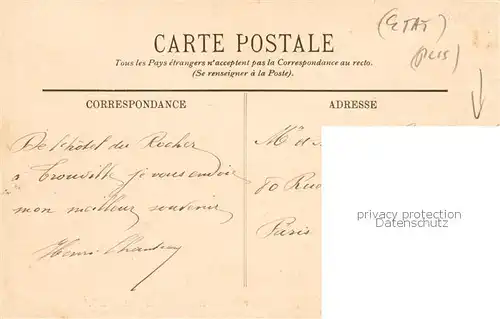 (ETAT)
(PLIS)
CARTE POSTALE
Tous les Pays étrangers n'acceptent pas la Correspondance au recto.
(Se renseigner à la Poste).
CORRESPONDANCE
ADRESSE
De l'hôtel du Rocher
à Trouville je vous envoie
mon meilleur souvenir
Henri
80 Rue
Paris
privacy protection
Datenschutz